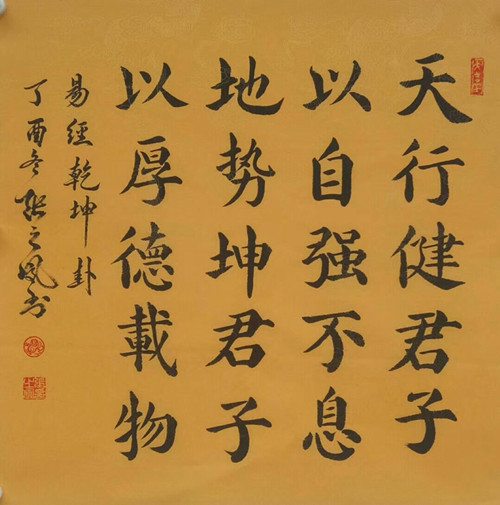 天行健君子
以自强不息
地势坤君子
以厚德載物
易經乾坤卦
丁酉冬張之風书